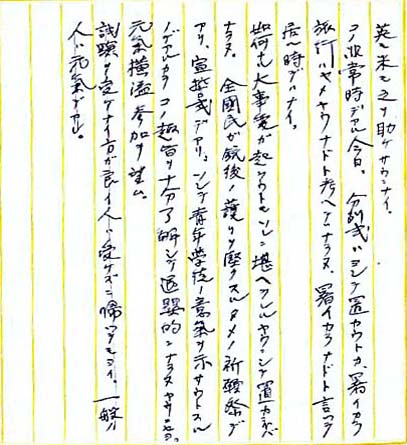 英ト米ト之ヲ助ケサウシナイ。
コノ非常時デアル今日、分列式ハヨシテ置カウトカ、暑イカラ
旅行ハヤメヤウナドト考ヘテハナラヌ、暑イカラナドト言ツテ
居ル時デハナイ。
如何ナル大事変が起ラウトモソレニ堪ヘラレルヤウニシテ置カネバ
ナラヌ。全国民が銃後ノ護リヲ堅クスルタメノ祈願祭デ
アリ、宣誓式デアリ、ソシテ青年学徒ノ意気ヲ示サウトスル
ノデアルカラコノ趣旨ヲ十分了解シテ退嬰的ニナラヌヤウニセヨ。
元氣横溢参加ヲ望ム。
試験ヲ受ケナイ方が良イ人ハ受ケズニ帰ツテモヨイ。一般ノ
人ハ元氣デアル。